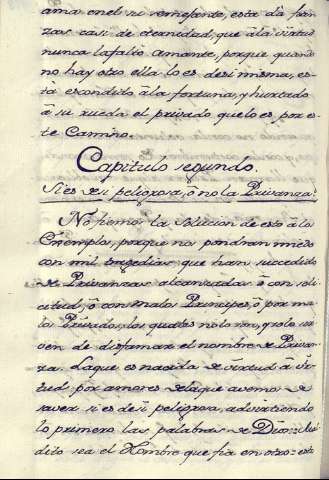 ama en el su semejante, esta dà fian-
zas casi de eternidad, que à la virtud
nunca la faltó amante, porque quando
no hay otro ella lo es de si misma, es-
tà escondido à la fortuna, y hurtado
à su rueda el privado que lo es por es-
te Camino.
Capitulo segundo.
Si es de si peligrosa, ò no la Privanza.
No fiemo la solucion de esto à los
Exemplos, porque nos pondran miedo
con mil tragedias que han sucedido
de Privanzas alcanzadas ò con soli-
citud, ò con malos Principes, ò por ma-
los Privados, los quales no lo son, y solo sir-
ven de disfamar el nombre de Privan-
za. La que es nacida de virtud à vir-
tud por amores de la que avemos de
saver si es de si peligrosa, advirtiendo
lo primero las palabras de Dios: Mal-
dito sea el Hombre que fia en otro: esto